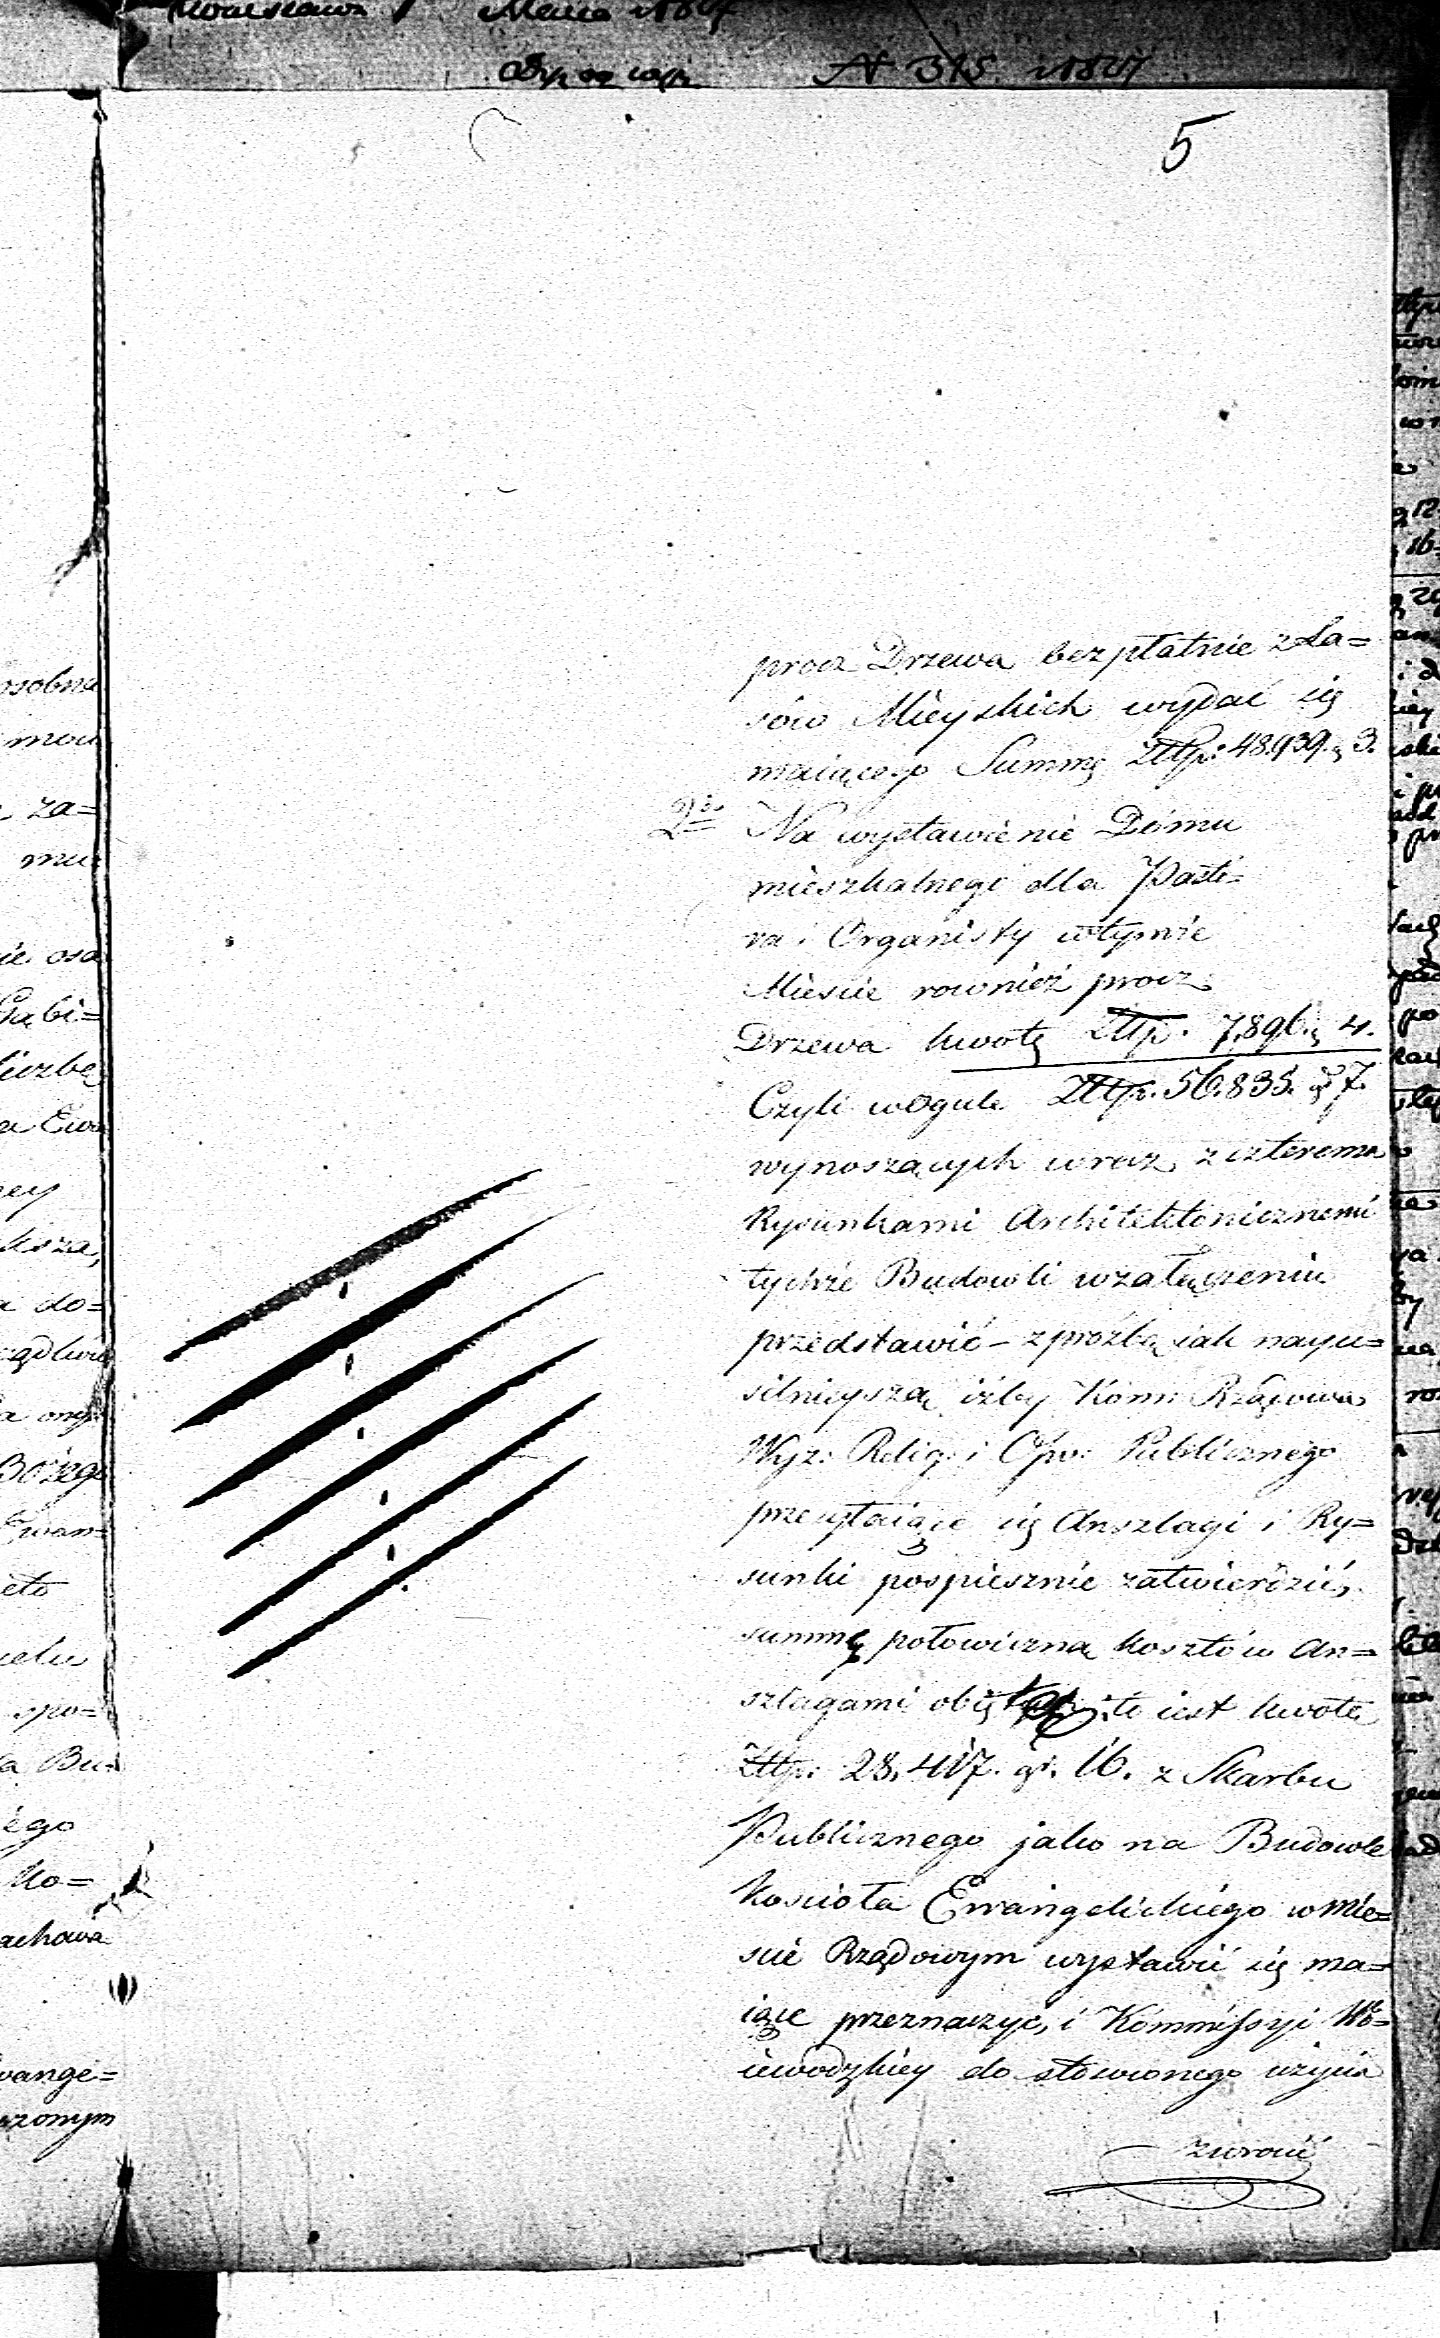 5
procz Drzewa bezpłatnie z La=
sów Mieyskich wydać się
maiącego Summę Złtp: 48.939. g 3.
2do Na wystawienie Domu
mieszkalnego dla Pasto=
ra i Organisty w tymże
Miescie rownież procz
Drzewa kwotę Złtp. 7,896. g 4.
Czyli wogule Złtp. 56.835. gr 7.
wynoszących wraz z czterema
Rysunkami Architektonicznemi
tychże Budowli w załączeniu
przedstawić – z proźbą iak nayu=
silnieyszą iżby Kom: Rządowa
Wyz: Relig: i Ośw: Publicznego
przesyłaiące się Anszlagi i Ry=
sunki pospiesznie zatwierdzić,
summę połowiczną kosztów An=
szlagami to iest kwotę
Złtp: 28,417. gr. 16. z Skarbu
Publicznego jako na Budowle
Koscioła Ewangelickiego w Mie=
scie Rządowym wystawić się ma=
iące przeznaczyć, i Kommissyi Wo=
iewodzkiey do stosownego użycia
zwrocić